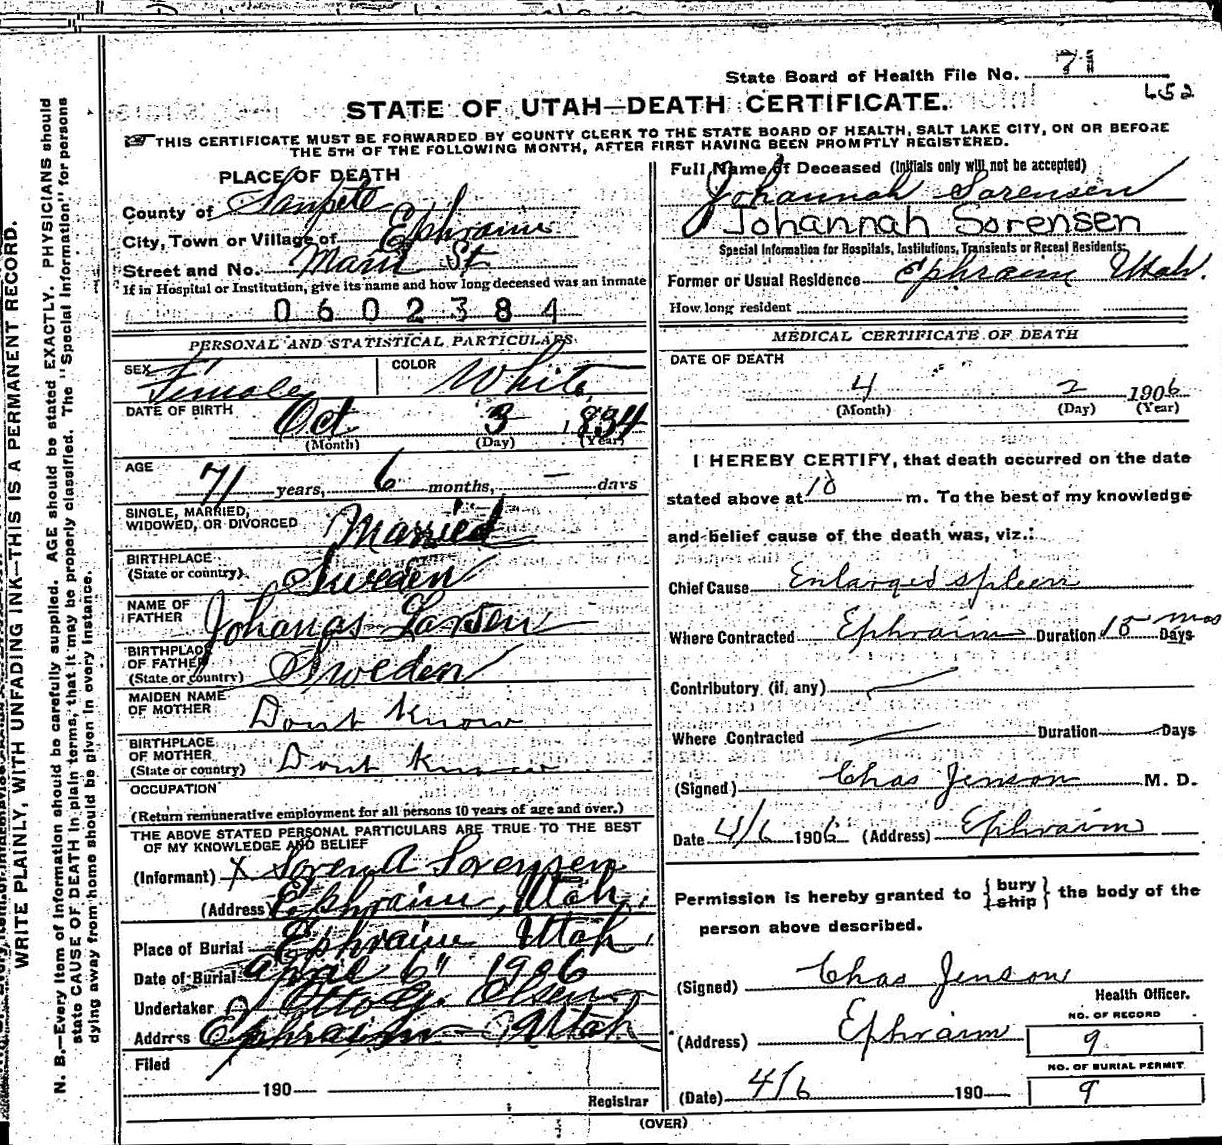 State Board of Health File No. 71
652
STATE OF UTAH—DEATH CERTIFICATE.
THIS CERTIFICATE MUST BE FORWARDED BY COUNTY CLERK TO THE STATE BOARD OF HEALTH, SALT LAKE CITY, ON OR BEFORE
THE 5TH OF THE FOLLOWING MONTH, AFTER FIRST HAVING BEEN PROMPTLY REGISTERED.
WRITE PLAINLY, WITH UNFADING INK—THIS IS A PERMANENT RECORD.
N. B.—Every item of information should be carefully supplied. AGE should be stated EXACTLY. PHYSICIANS should
state CAUSE OF DEATH in plain terms, that it may be properly classified. The "Special Information" for persons
dying away from home should be given in every instance.
PLACE OF DEATH
County of Sanpete
City, Town or Village of Ephraim
Street and No. Main St
If in Hospital or Institution, give its name and how long deceased was an inmate
0602384
PERSONAL AND STATISTICAL PARTICULARS
SEX Female COLOR White
DATE OF BIRTH Oct 3 1834
(Month) (Day) (Year)
AGE 71 years, 6 months, — days
SINGLE, MARRIED,
WIDOWED, OR DIVORCED Married
BIRTHPLACE
(State or country) Sweden
NAME OF
FATHER Johanas Larsen
BIRTHPLACE
OF FATHER
(State or country) Sweden
MAIDEN NAME
OF MOTHER Dont Know
BIRTHPLACE
OF MOTHER
(State or country) Dont Know
OCCUPATION
(Return remunerative employment for all persons 10 years of age and over.)
THE ABOVE STATED PERSONAL PARTICULARS ARE TRUE TO THE BEST
OF MY KNOWLEDGE AND BELIEF
(Informant) X Soren A Sorensen
(Address) Ephraim, Utah,
Place of Burial Ephraim Utah,
Date of Burial April 6" 1906
Undertaker Olsen
Address Ephraim Utah
Filed
190—
Registrar
Full Name of Deceased (Initials only will not be accepted)
Johannah Sorensen
Johannah Sorensen
Special Information for Hospitals, Institutions, Transients or Recent Residents:
Former or Usual Residence Ephraim Utah.
How long resident
MEDICAL CERTIFICATE OF DEATH
DATE OF DEATH
4 2 1906
(Month) (Day) (Year)
I HEREBY CERTIFY, that death occurred on the date
stated above at 10 m. To the best of my knowledge
and belief cause of the death was, viz.:
Chief Cause Enlarged spleen
Where Contracted Ephraim Duration 18 mos Days
Contributory (if, any)
Where Contracted — Duration — Days
(Signed) Chas Jenson M. D.
Date 4/6 1906 (Address) Ephraim
Permission is hereby granted to {bury ship} the body of the
person above described.
(Signed) Chas Jenson
Health Officer.
(Address) Ephraim
NO. OF RECORD
9
NO. OF BURIAL PERMIT
9
(Date) 4/6 190—
(OVER)